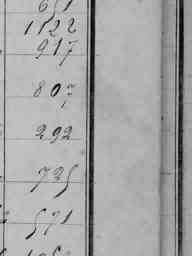 1122
917
807
292
725
571